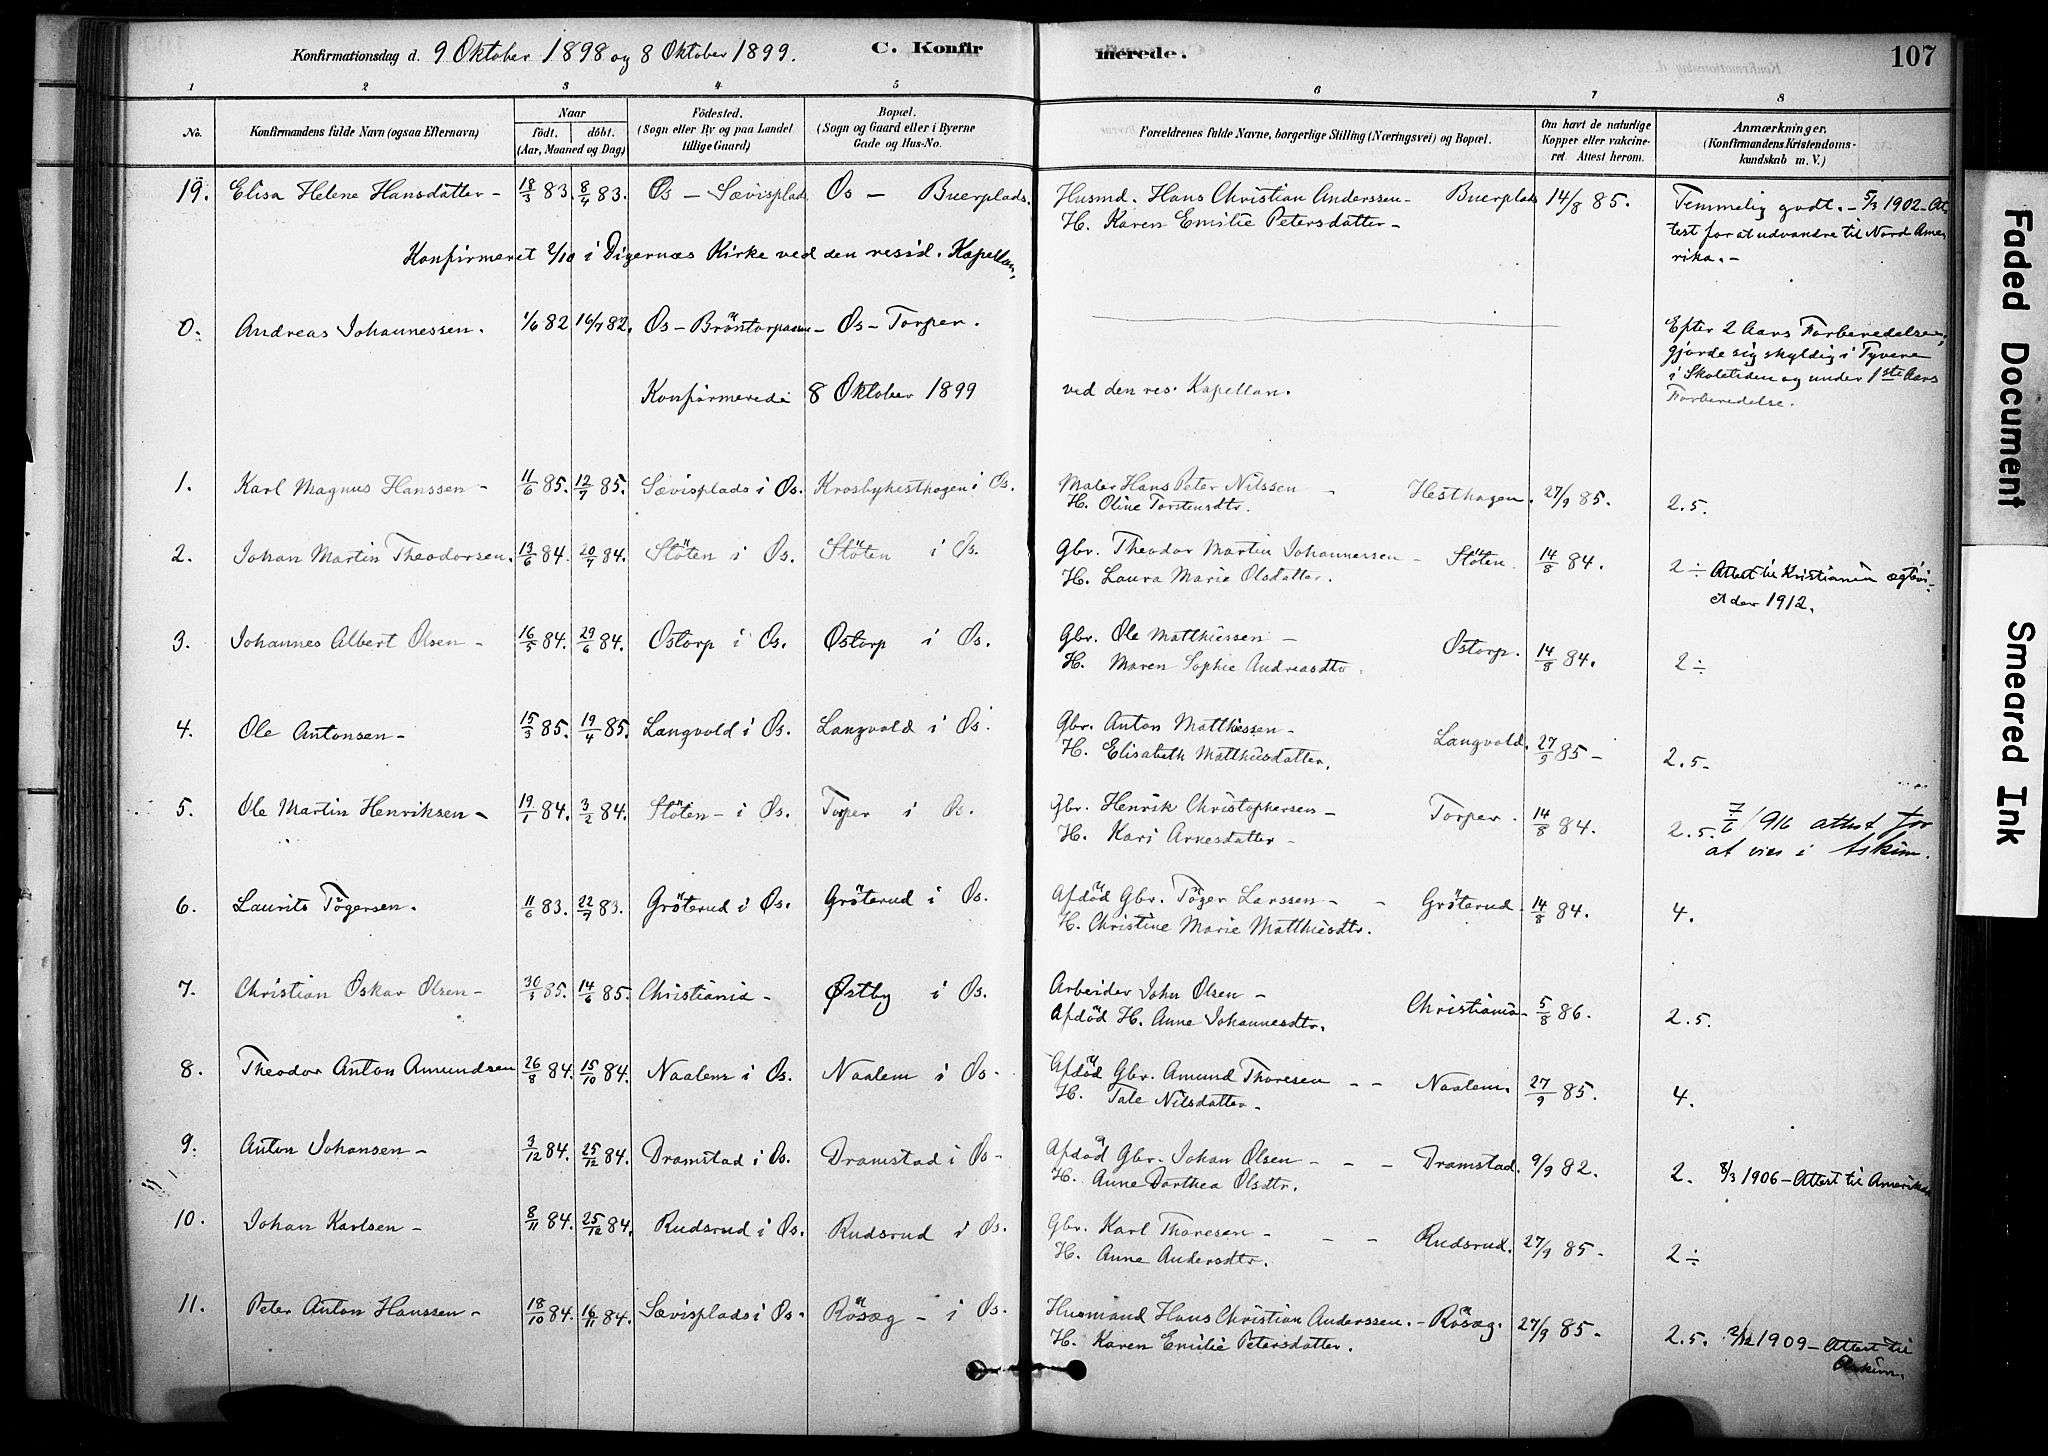 Konfirmationsdag d. 9 Oktober 1898 og 8 Oktober 1899. C. Konfir merede. 107
1 2 3 4 5 6 7 8
No. Konfirmandens fulde Navn (ogsaa Efternavn) Naar födt. döbt. (Aar, Maaned og Dag) Födested. (Sogn eller By og paa Landet tillige Gaard) Bopæl. (Sogn og Gaard eller i Byerne Gade og Hus-No. Forældrenes fulde Navne, borgerlige Stilling (Næringsvei) og Bopæl. Om havt de naturlige Kopper eller vakcineret. Attest herom. Anmærkninger. (Konfirmandens Kristendomskundskab m. V.)
19. Elisa Helene Hansdatter - 18/3 83. 8/4 83. Øs - Sævisplads Øs - Buerplads. Husmd. Hans Christian Anderssen - Buerplads 14/8 85. Temmelig godt. - 5/3 1902 - At
H. Karen Emilie Petersdatter - test for at udvandre til Nord Ame
rika. -
Konfirmeret 2/10 i Digernæs Kirke ved den resid. Kapellan,
0. Andreas Johannessen. 1/6 82 16/7 82. Øs - Øs - Torper. Efter 2 Aars Forberedelse,
gjorde sig skyldig i Tyveri
i Skoletiden og under 1ste Aars
Forberedelse.
Konfirmerede 8 Oktober 1899 ved den res. Kapellan.
1. Karl Magnus Hanssen - 11/6 85. 12/7 85. Sævisplads i Øs. Krosbyhesthagen i Øs. Maler Hans Peter Nilssen - Hesthagen. 27/9 85. 2.5.
H. Oline Torstensdtr.
2. Johan Martin Theodorsen. 13/6 84. 20/7 84. Stöten i Øs. Stöten i Øs. Gbr. Theodor Martin Johannessen - Stöten. 14/8 84. 2 ÷ Attest til Kristiania
H. Laura Marie Olsdatter. 1912.
3. Johannes Albert Olsen - 16/5 84. 29/6 84. Østorp i Øs. Østorp i Øs. Gbr. Ole Matthiessen - Østorp. 14/8 84. 2 ÷
H. Maren Sophie Andreasdtr.
4. Ole Antonsen - 15/3 85. 19/4 85. Langvold i Øs. Langvold i Øs. Gbr. Anton Matthiessen - Langvold. 27/9 85 - 2.5 -
H. Elisabeth Matthiisdatter.
5. Ole Martin Henriksen - 19/1 84. 3/2 84. Stöten - i Øs. Torper i Øs. Gbr. Henrik Christophersen - Torper. 14/8 84. 2.5. 7/6 1916 attest for
H. Kari Arnesdatter - at vies i Askim.
6. Laurits Tögersen. 11/6 83. 22/7 83. Gröterud i Øs. Gröterud i Øs. Afdöd Gbr. Töger Larssen - - Gröterud. 14/8 84. 4.
H. Christine Marie Matthiisdtr.
7. Christian Oskar Olsen - 30/3 85. 14/6 85. Christiania - Østby i Øs. Arbeider John Olsen - Christiania - 5/8 86. 2.5.
Afdöd H. Anne Johannesdtr.
8. Theodor Anton Amundsen 26/8 84. 15/10 84. Naalem i Øs. Naalem i Øs - Afdöd Gbr. Amund Thoresen - - Naalem. 27/9 85. 4.
H. Tale Nilsdatter -
9. Anton Johansen - 3/12 84. 25/12 84. Dramstad i Øs. Dramstad i Øs - Afdöd Gbr. Johan Olsen - - - Dramstad. 9/9 82. 2. 8/3 1906 - Attest til Amerika
H. Anne Dorthea Olsdtr.
10. Johan Karlsen - 8/11 84. 25/12 84. Rudsrud i Øs. Rudsrud i Øs. Gbr. Karl Thoresen - - - Rudsrud. 27/9 85 - 2 ÷
H. Anne Andersdtr.
11. Peter Anton Hanssen - 18/10 84. 16/11 84. Sævisplads i Øs. Rösæg - i Øs. Husmand Hans Christian Anderssen. - Rösæg. 27/9 85 - 2.5. 2/12 1909 - Attest til
H. Karen Emilie Petersdatter. Askim.
Faded Document
Smeared Ink